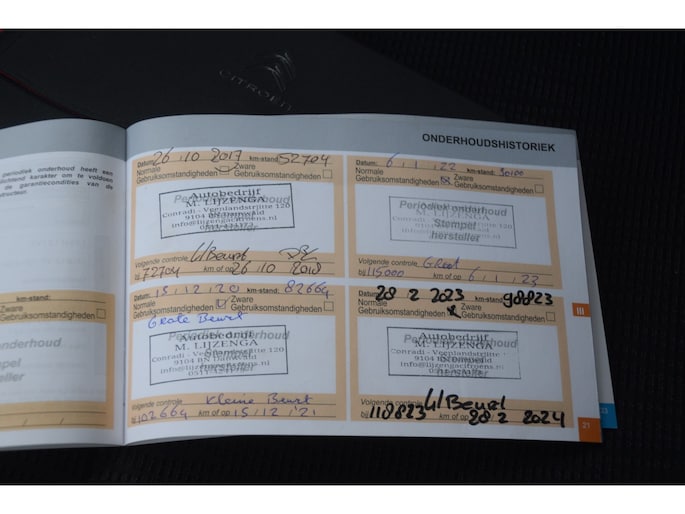 CITROËN
ONDERHOUDSHISTORIEK
periodiek onderhoud heeft een
karakter om te voldoen
de garantiecondities van de
km-stand:
Zware
Gebruiksomstandigheden
hersteller
Datum: 26 / 10 2017 km-stand: 52704
Normale Zware
Gebruiksomstandigheden Gebruiksomstandigheden
Periodiek onderhoud
Autobedrijf
M. LIJZENGA
9104 BN Damwald
info@lijzengacitroens.nl
Volgende controle
bij 72704 km of op 26 10 2018
Datum: 6 / 1 / 22 km-stand:
Normale Zware
Gebruiksomstandigheden Gebruiksomstandigheden
Periodiek onderhoud
Stempel
hersteller
Volgende controle, Groot
bij 115000 km of op 6 / 1 / 23
Datum: 15 / 12 / 20 km-stand: 82664
Normale Zware
Gebruiksomstandigheden Gebruiksomstandigheden
Grote Beurt
Autobedrijf
M. LIJZENGA
9104 BN Damwald
Volgende controle, Kleine Beurt
bij 102664 km of op 15 / 12 / 21
28 2 2023 km-stand: 98823
Normale Zware
Gebruiksomstandigheden Gebruiksomstandigheden
Autobedrijf
M. LIJZENGA
hersteller
Volgende controle, Beurt
bij 118823 km of op 28 2 2024
III
21
23